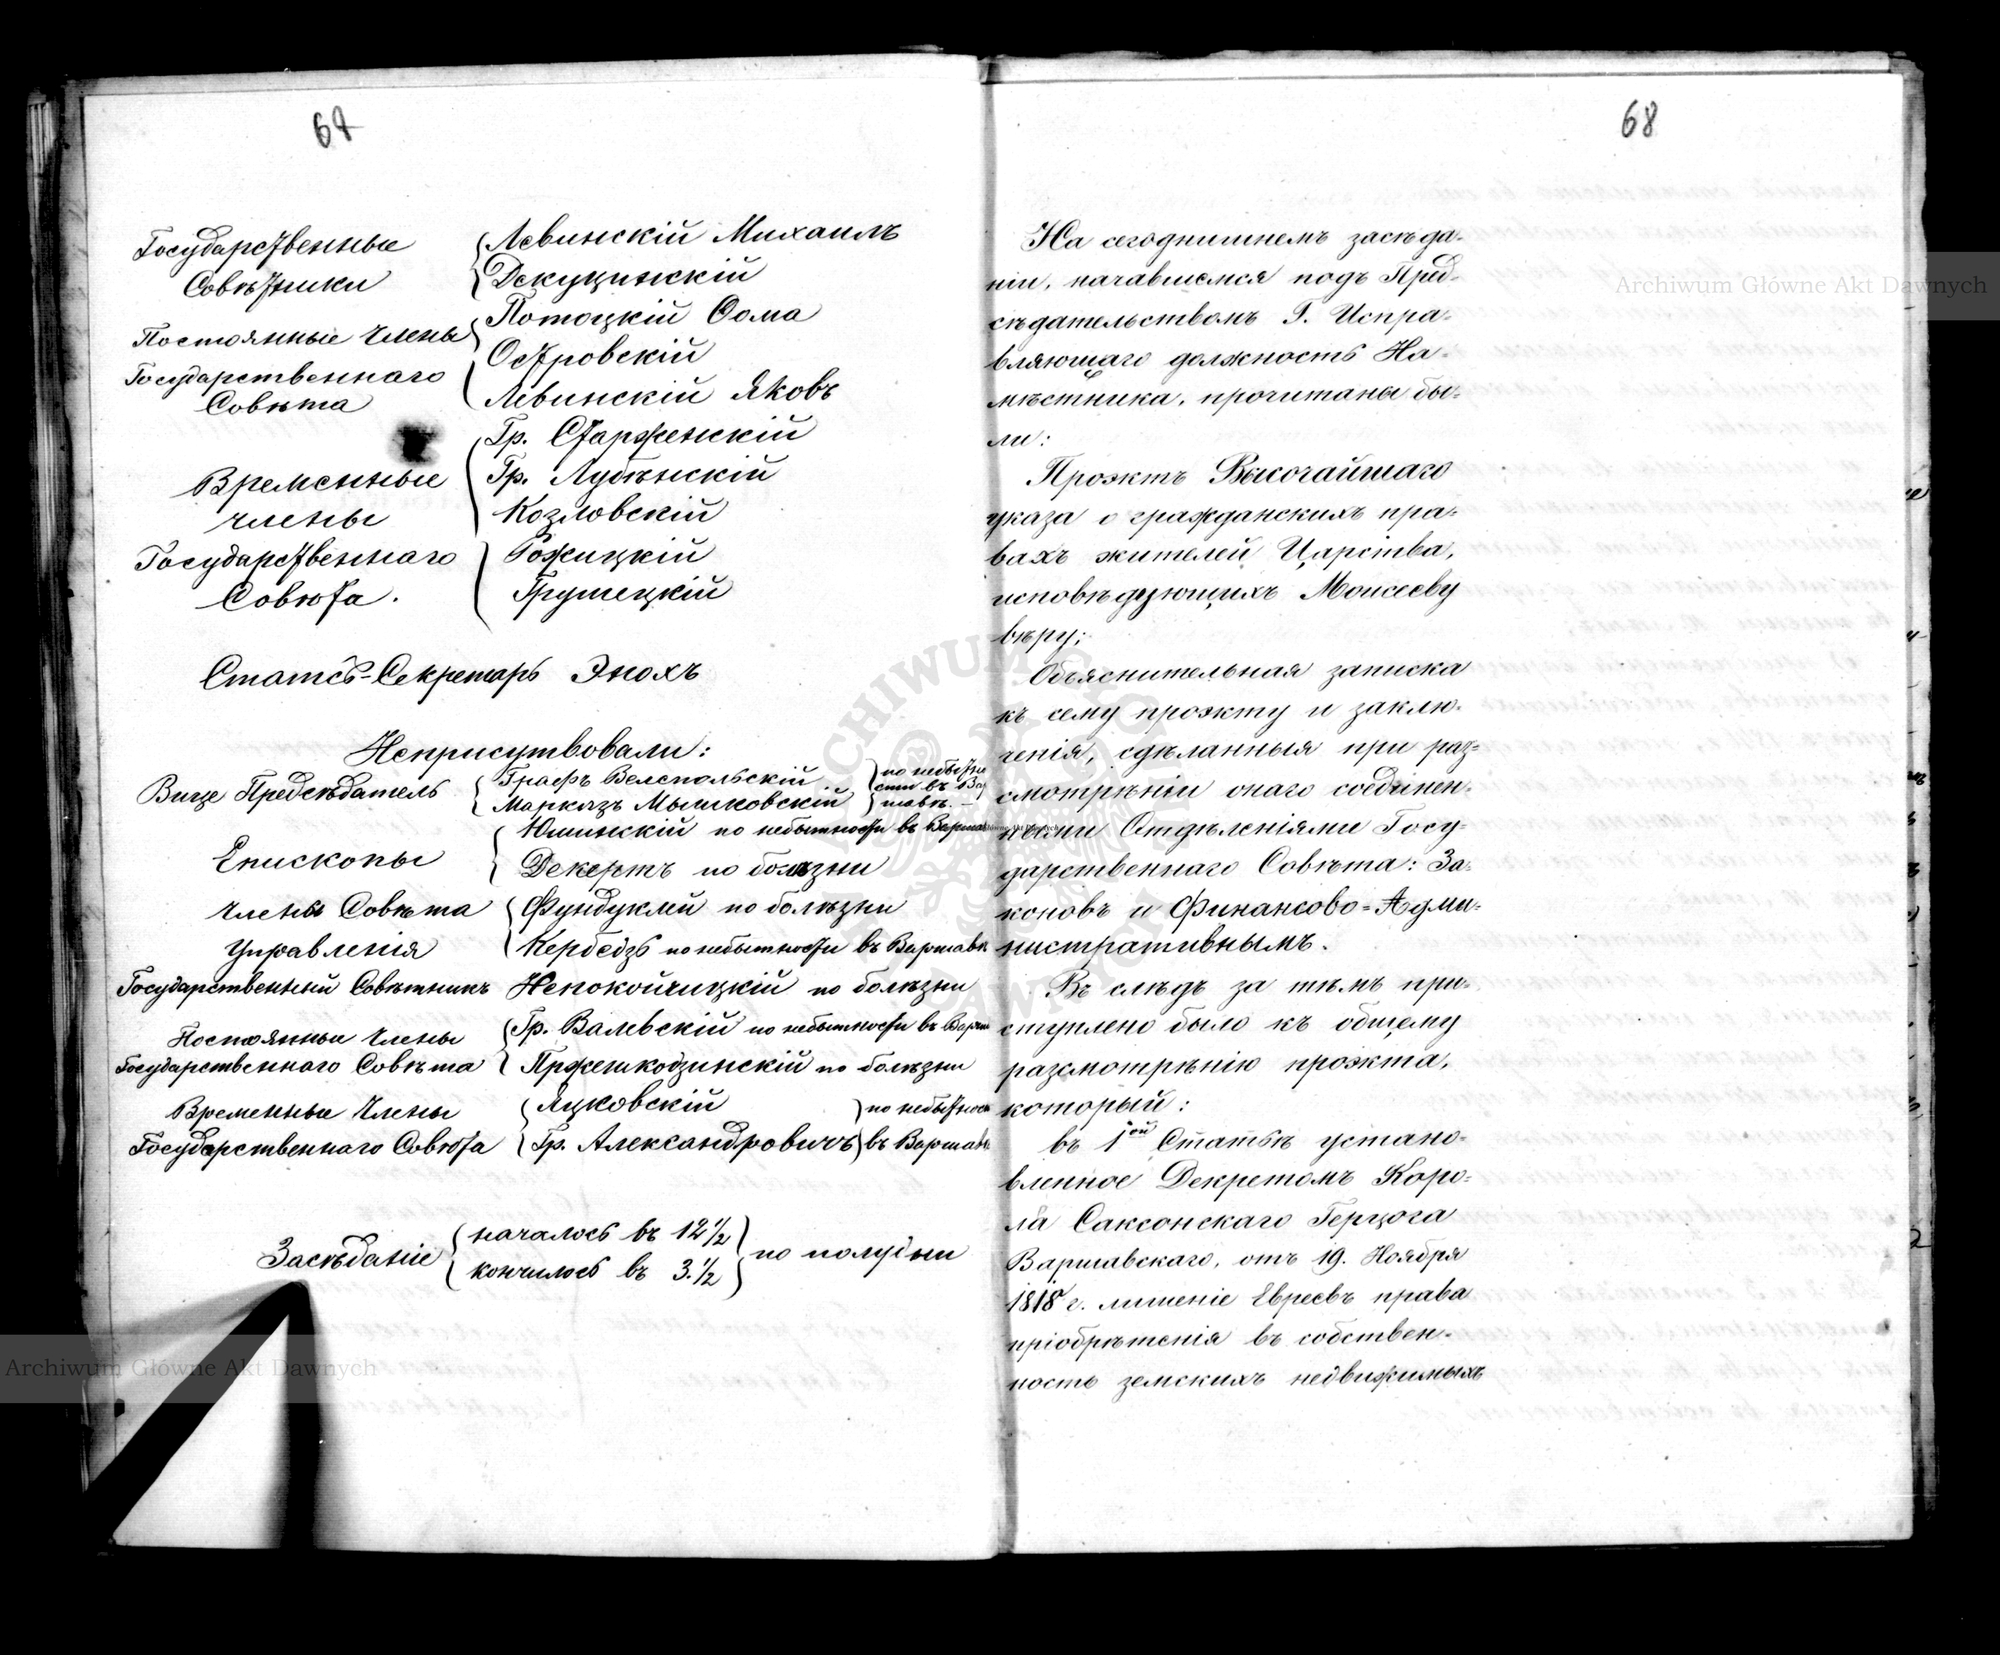 67
Государственные
Совѣтники
Левинскій Михаилъ
Декуцинскій
Постоянные Члены
Государственнаго
Совѣта
Потоцкій Ѳома
Островскій
Левинскій Яковъ
Временные
члены
Государственнаго
Совѣта.
Гр. Старженскій
Гр. Лубѣнскій
Козловскій
Рожицкій
Грушецкій
Статсъ-Секретарь Энохъ
Неприсутвовали:
Вице Предсѣдатель
Графъ Велепольскій
Маркизъ Мышковскій
по небытно
сти въ Вар
шавѣ. —
Епископы
Юшинскій по небытности въ Варша
Декертъ по болѣзни
Члены Совѣта
Управленія
Фундуклей по болѣзни
Кербедзъ по небытности въ Варшавѣ
Государственный Совѣтникъ Непокойчицкій по болѣзни
Постоянные Члены
Государственнаго Совѣта
Гр. Валевскій по небытности въ Варш
Пржешкодзинскій по болѣзни
Временные Члены
Государственнаго Совѣта
Яцковскій
Гр. Александровичъ
по небытнос
въ Варшавѣ
Засѣданіе
началось въ 12 1/2
кончилось въ 3. 1/2
по полудни
68
На сегоднишнемъ засѣда-
ніи, начавшемся подъ Пред-
сѣдательствомъ Г. Испра-
вляющаго должность На-
мѣстника, прочитаны бы-
ли:
Проэктъ Высочайшаго
указа о гражданскихъ пра-
вахъ жителей Царства,
исповѣдующихъ Моисееву
вѣру;
Объяснительная записка
къ сему проэкту и заклю-
ченія, сдѣланныя при раз-
смотрѣніи онаго соединен-
ными Отдѣленіями Госу-
дарственнаго Совѣта: За-
коновъ и Финансово-Адми-
нистративнымъ.
Въ слѣдъ за тѣмъ при-
ступлено было къ общему
разсмотрѣнію проэкта,
который:
въ 1ой Статьѣ устано-
вленное Декретомъ Коро-
ля Саксонскаго Герцога
Варшавскаго, отъ 19. Ноября
1818 г. лишеніе Евреевъ права
пріобрѣтенія въ собствен-
ность земскихъ недвижимыхъ
Archiwum Główne Akt Dawnych
Archiwum Główne Akt Dawnych